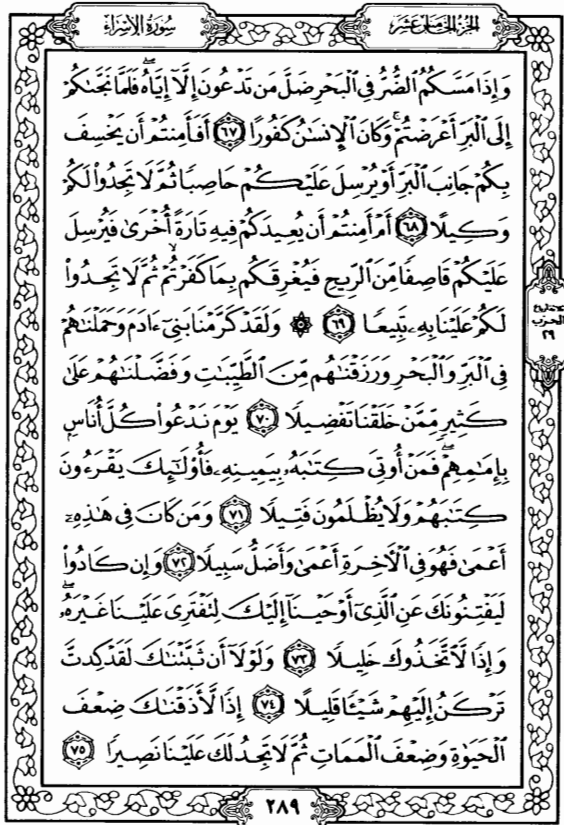 سُورَةُ الإِسْرَاءِ
الجُزْءُ الخَامِسَ عَشَرَ
وَإِذَا مَسَّكُمُ ٱلضُّرُّ فِى ٱلْبَحْرِ ضَلَّ مَن تَدْعُونَ إِلَّآ إِيَّاهُ ۖ فَلَمَّا نَجَّىٰكُمْ
إِلَى ٱلْبَرِّ أَعْرَضْتُمْ ۚ وَكَانَ ٱلْإِنسَٰنُ كَفُورًا ٦٧ أَفَأَمِنتُمْ أَن يَخْسِفَ
بِكُمْ جَانِبَ ٱلْبَرِّ أَوْ يُرْسِلَ عَلَيْكُمْ حَاصِبًا ثُمَّ لَا تَجِدُوا۟ لَكُمْ
وَكِيلًا ٦٨ أَمْ أَمِنتُمْ أَن يُعِيدَكُمْ فِيهِ تَارَةً أُخْرَىٰ فَيُرْسِلَ
عَلَيْكُمْ قَاصِفًا مِّنَ ٱلرِّيحِ فَيُغْرِقَكُم بِمَا كَفَرْتُمْ ۙ ثُمَّ لَا تَجِدُوا۟
لَكُمْ عَلَيْنَا بِهِۦ تَبِيعًا ٦٩ ۞ وَلَقَدْ كَرَّمْنَا بَنِىٓ ءَادَمَ وَحَمَلْنَٰهُمْ
فِى ٱلْبَرِّ وَٱلْبَحْرِ وَرَزَقْنَٰهُم مِّنَ ٱلطَّيِّبَٰتِ وَفَضَّلْنَٰهُمْ عَلَىٰ
كَثِيرٍ مِّمَّنْ خَلَقْنَا تَفْضِيلًا ٧٠ يَوْمَ نَدْعُوا۟ كُلَّ أُنَاسٍۭ
بِإِمَٰمِهِمْ ۖ فَمَنْ أُوتِىَ كِتَٰبَهُۥ بِيَمِينِهِۦ فَأُو۟لَٰٓئِكَ يَقْرَءُونَ
كِتَٰبَهُمْ وَلَا يُظْلَمُونَ فَتِيلًا ٧١ وَمَن كَانَ فِى هَٰذِهِۦٓ
أَعْمَىٰ فَهُوَ فِى ٱلْءَاخِرَةِ أَعْمَىٰ وَأَضَلُّ سَبِيلًا ٧٢ وَإِن كَادُوا۟
لَيَفْتِنُونَكَ عَنِ ٱلَّذِىٓ أَوْحَيْنَآ إِلَيْكَ لِتَفْتَرِىَ عَلَيْنَا غَيْرَهُۥ ۖ
وَإِذًا لَّٱتَّخَذُوكَ خَلِيلًا ٧٣ وَلَوْلَآ أَن ثَبَّتْنَٰكَ لَقَدْ كِدتَّ
تَرْكَنُ إِلَيْهِمْ شَيْـًٔا قَلِيلًا ٧٤ إِذًا لَّأَذَقْنَٰكَ ضِعْفَ
ٱلْحَيَوٰةِ وَضِعْفَ ٱلْمَمَاتِ ثُمَّ لَا تَجِدُ لَكَ عَلَيْنَا نَصِيرًا ٧٥
الحزب
٢٩
٢٨٩